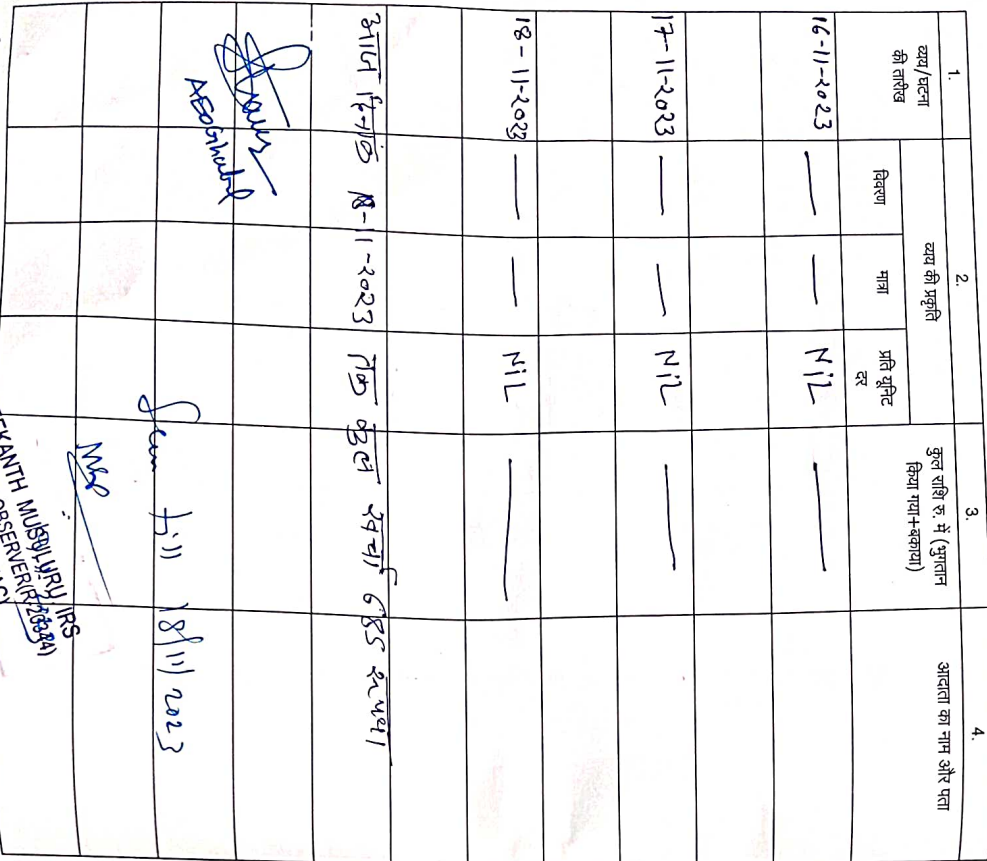 1. 2. 3. 4.
व्यय/घटना की तारीख
व्यय की प्रकृति
कुल राशि रु. में (भुगतान किया गया+बकाया)
आदाता का नाम और पता
विवरण मात्रा प्रति यूनिट दर
16-11-2023 — — NiL —
17-11-2023 — — NiL —
18-11-2023 — — NiL —
आज दिनांक 18-11-2023 तक कुल खर्चा 685 रुपया
AEOGhabel
Seen till 18/11/2023
EKANTH MUSILURU, IRS
OBSERVER(R-23344)